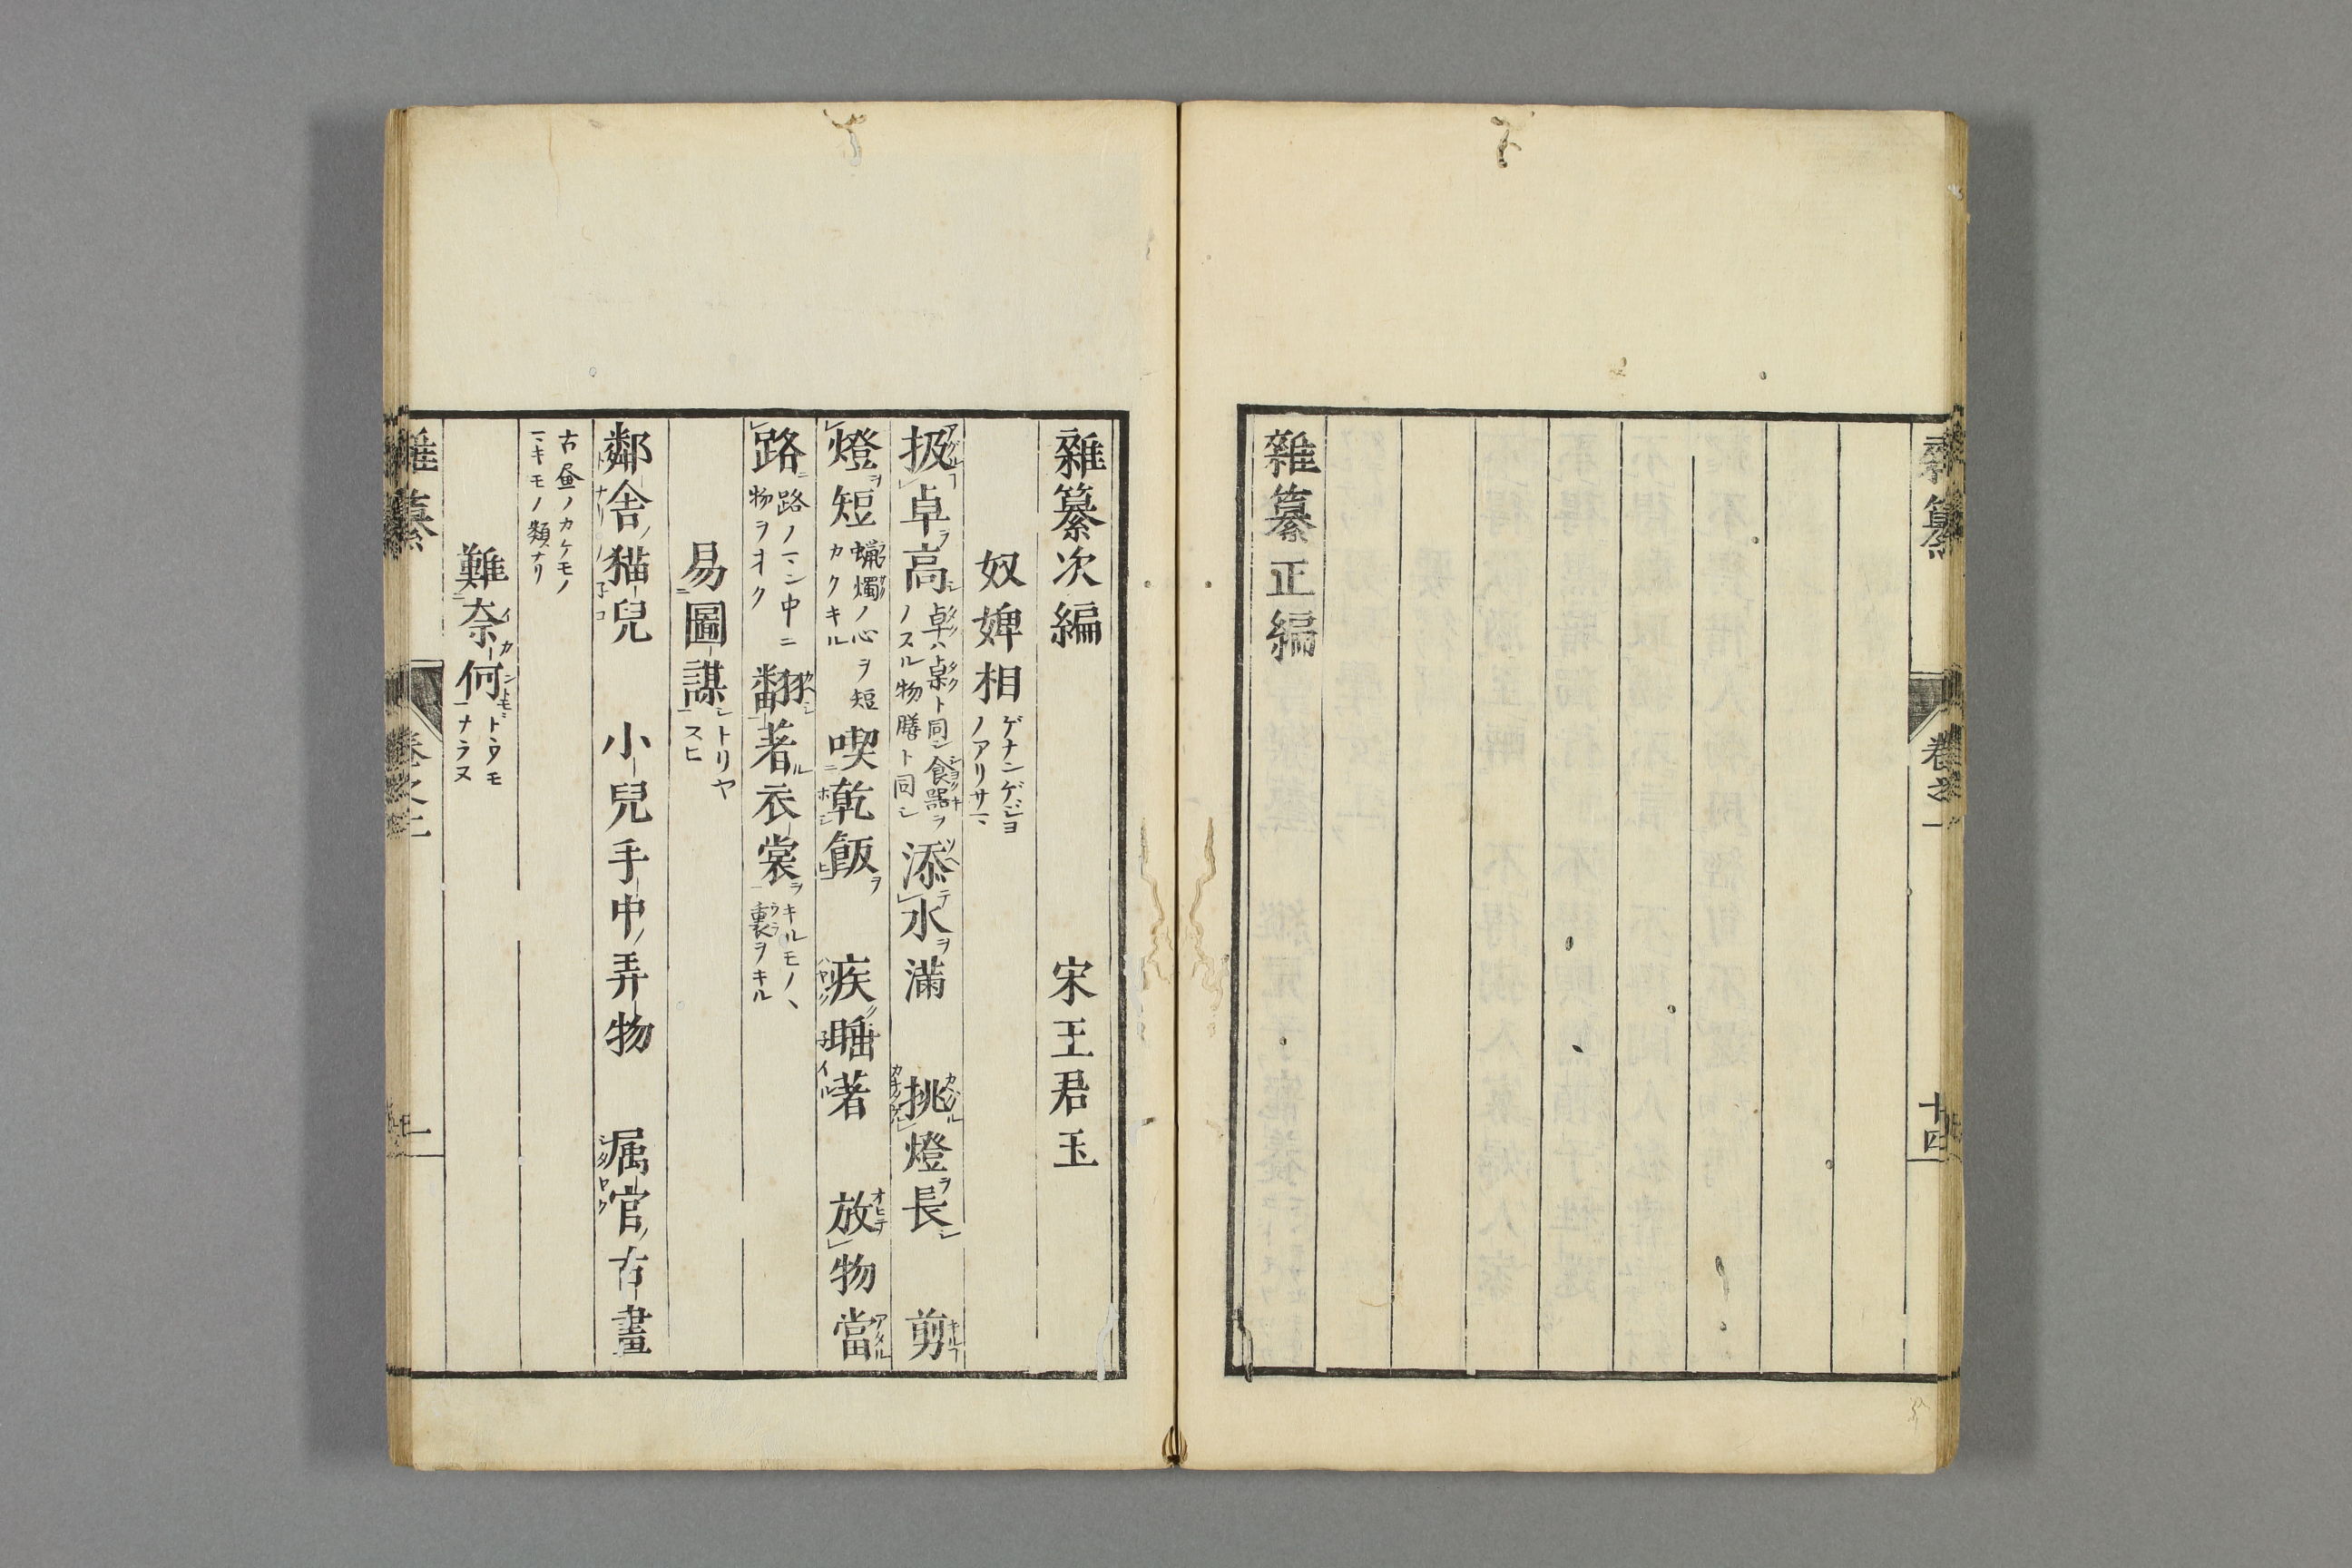 雜纂 卷之一 十四
雜纂正編
雜纂次編 宋王君玉
奴婢相 ゲナンゲジヨ
ノアリサマ
扱卓高 卓ハ槕ト同シ食器ヲ
ノスル物膳ト同シ 添水滿 挑燈長 剪
燈短 蝋燭ノ心ヲ短
カクキル 喫乾飯 疾睡著 放物當
路 路ノマン中ニ
物ヲオク 翻著衣裳 キルモノヽ
裏ヲキル
易圖謀 トリヤ
スヒ
鄰舍猫兒 小兒手中弄物 属官古畫
古畫ノカケモノ
マキモノノ類ナリ
難奈何 トウモ
ナラヌ
雜纂 卷之二 一